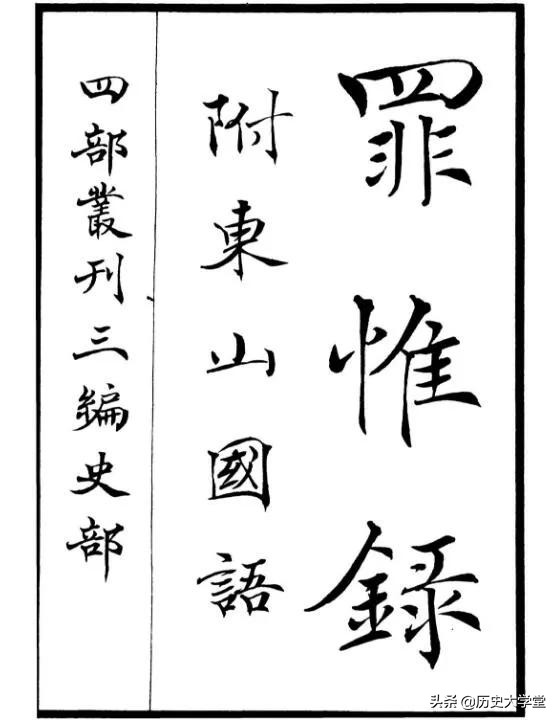 罪惟錄
附東山國語
四部叢刊三編史部
头条 @历史大学堂